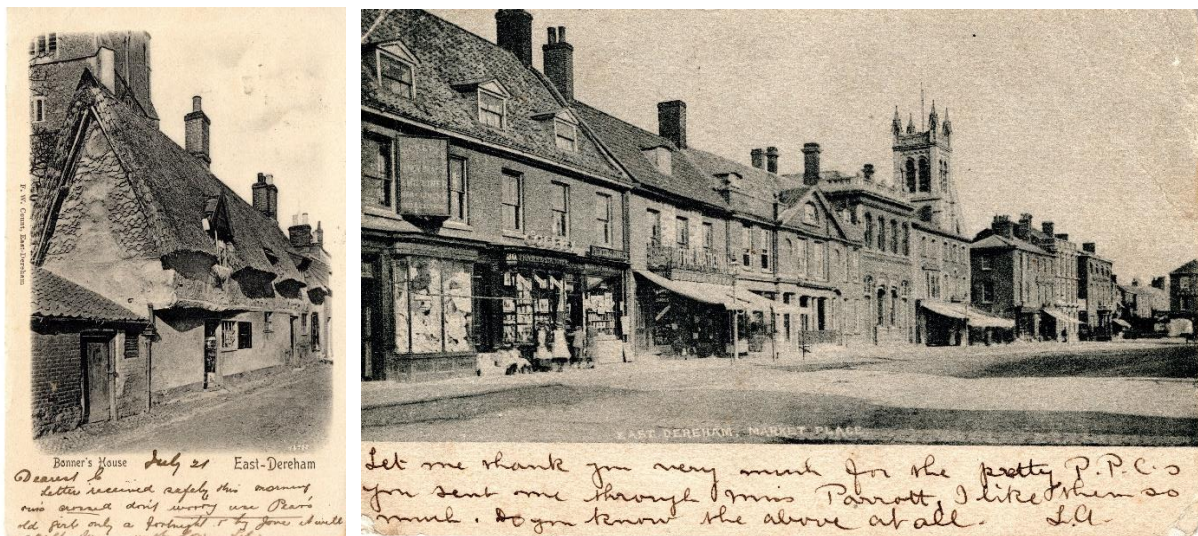 F. W. Count, East-Dereham
Bonner's House July 21 East-Dereham
Dearest C
Letter received safely this morning
don't worry use Pear's
old girl only a fortnight & by Jove it will
EAST DEREHAM, MARKET PLACE
Let me thank you very much for the pretty P.P.C.s
you sent me through Miss Parrott, I like them so
much. Do you know the above at all. L.A.